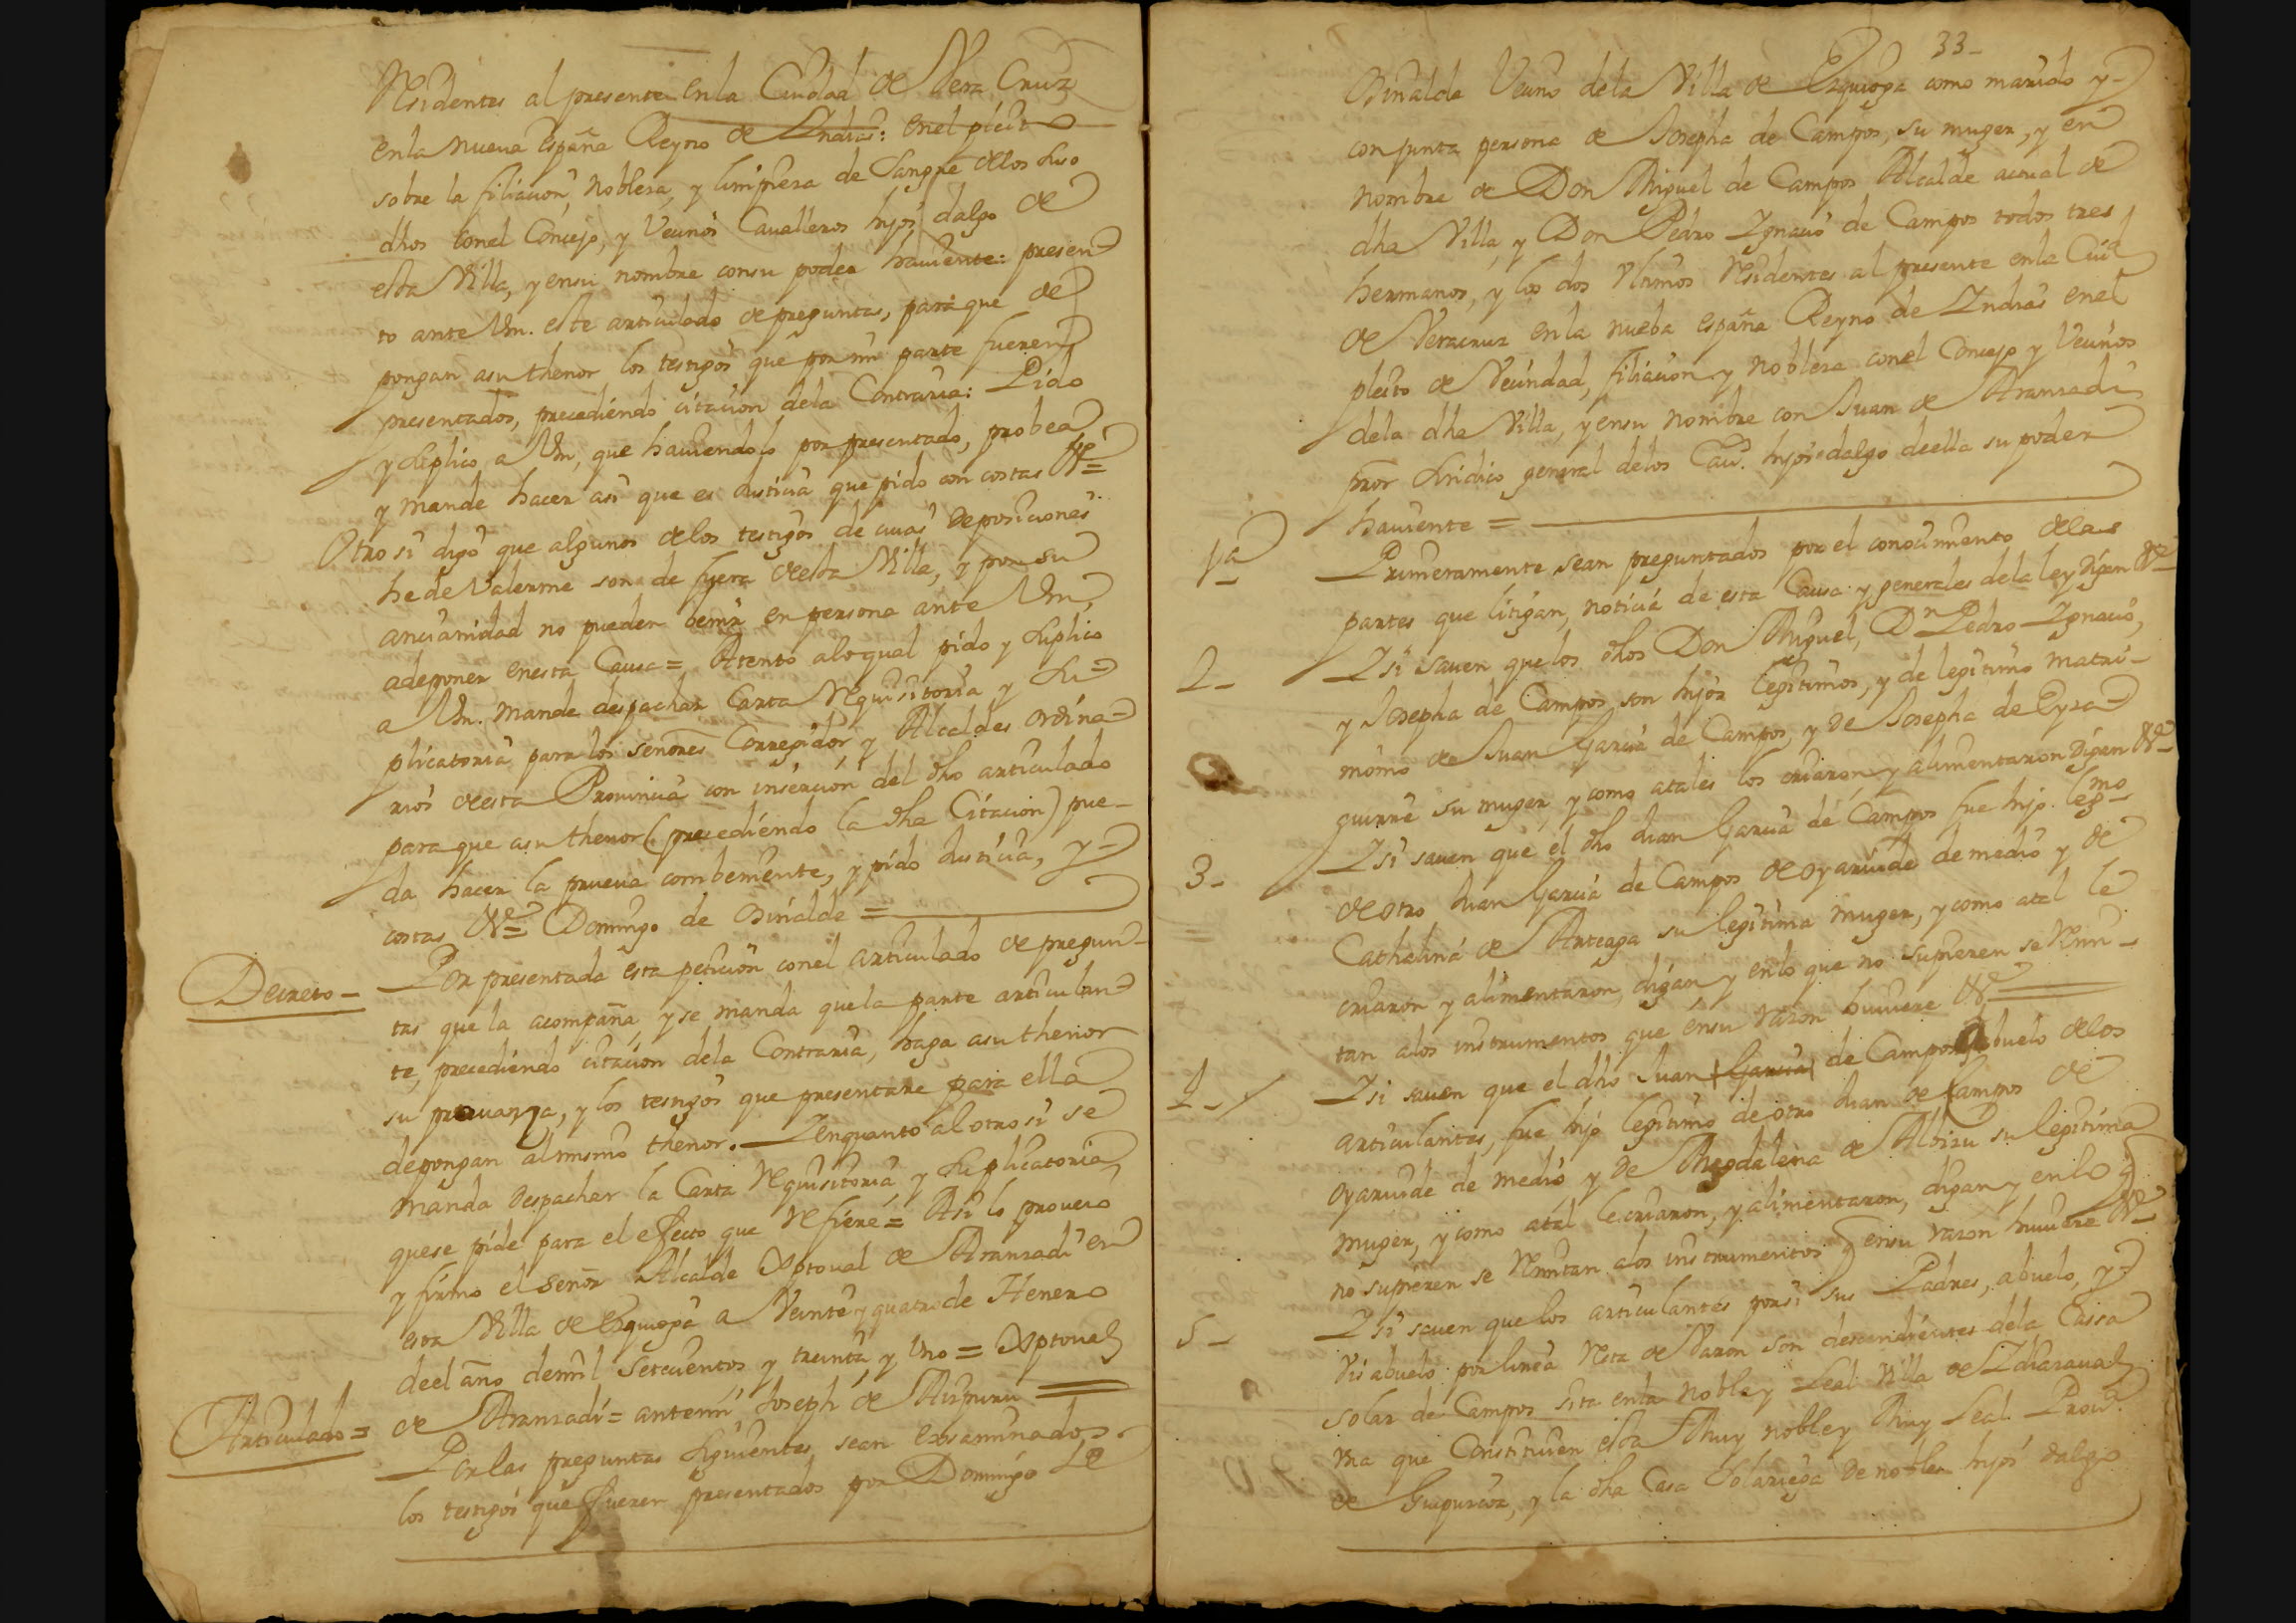 Residentes al presente en la Ciudad de Vera Cruz
en la nueva España Reyno de Indias: en el pleito
sobre la filiacion, nobleza, y limpieza de Sangre de los suso
dhos con el Concejo, y Vecinos Cavalleros hijos dalgo de
esta Villa, y en su nombre con su poder haviente: presen
to ante Vm. este articulado de preguntas, para que de
pongan a su thenor los testigos que por mi parte fueren
presentados, precediendo citacion dela Contraria: Pido
y suplico a Vm, que haviendolo por presentado, probea
y mande hacer asi que es Justicia que pido con costas &ª=
Otro si digo que algunos de los testigos de cuias deposiciones
he de Valerme son de fuera de esta Villa, y por su
ancianidad no pueden benir en persona ante Vm,
a deponer en esta Causa= Atento a lo qual pido y suplico
a Vm. mande despachar Carta Requisitoria y Su=
plicatoria para los señores Corregidor, y Alcaldes ordina=
rios de esta Provincia con insercion del dho articulado
para que a su thenor (precediendo la dha Citacion) pue-
da hacer la prueva combeniente, y pido Justicia, y=
costas &ª= Domingo de Orinalde =
Decreto- Por presentada esta peticion con el articulado de pregun-
tas que la acompaña, y se manda que la parte articulan=
te, precediendo citacion dela Contraria, haga a su thenor
su provanza, y los testigos que presentare para ella
depongan al mismo thenor. Y en quanto al otro si se
manda despachar la Carta Requisitoria y Suplicatoria,
que se pide para el efecto que refiere= Asi lo proveio
y firmo el señor Alcalde Xptoval de Aranzadi en
esta Villa de Ezquioga a Veinte y quatro de Henero
de el año de mil Setecientos y treinta y Uno = Xptoval
Articulado= de Aranzadi= ante mi Joseph de Aizpuru
Por las preguntas siguientes sean Exsaminados
los testigos que fueren presentados por Domingo de
33-
Orinalde Vecino dela Villa de Ezquioga como marido y-
conjunta persona de Josepha de Campos, su muger, y en
nombre de Don Miguel de Campos Alcalde actual de
dha Villa, y Don Pedro Ignacio de Campos todos tres
hermanos, y los dos Ultimos Residentes al presente en la Ciud
de Veracruz en la nueba España Reyno de Indias en el
pleito de Vecindad, filiacion y nobleza con el Concejo y Vecinos
dela dha Villa, y en su nombre con Juan de Aranzadi
Pror Sindico general delos Cavs. hijos dalgo de ella su poder
haviente =
1ª Primeramente sean preguntados por el conocimiento de las
partes que litigan, noticia de esta Causa y generales dela ley digan &ª-
2- Y si saven que los dhos Don Miguel, Dn Pedro Ignacio,
y Josepha de Campos son hijos legitimos, y de legitimo matri-
monio de Juan Garcia de Campos, y de Josepha de Eyza=
guirre su muger, y como a tales los criaron y alimentaron digan &ª-
3- Y si saven que el dho Juan Garcia de Campos fue hijo legmo
de otro Juan Garcia de Campos de oyarvide de medio y de
Cathalina de Arteaga su legitima muger, y como a tal le
criaron y alimentaron, digan y en lo que no supieren se remi-
tan a los instrumentos que en su razon huviere &ª
4- Y si saven que el dho Juan Garcia de Campos Abuelo de los
articulantes, fue hijo legitimo de otro Juan de Campos de
oyarvide de medio y de Magdalena de Albizu su legitima
muger, y como a tal le criaron, y alimentaron, digan y en lo q
no supieren se remitan a los instrumentos q en su razon huviere &ª-
5- Y si saven que los articulantes por si sus Padres, abuelo, y=
Visabuelo por linea recta de Varon son descendientes dela Cassa
Solar de Campos sita en la noble y Leal Villa de Ychasaval
una que Constituien esta Muy noble y Muy Leal Prova.
de Guipuzcoa, y la dha Casa Solariega de nobles hijos dalgo